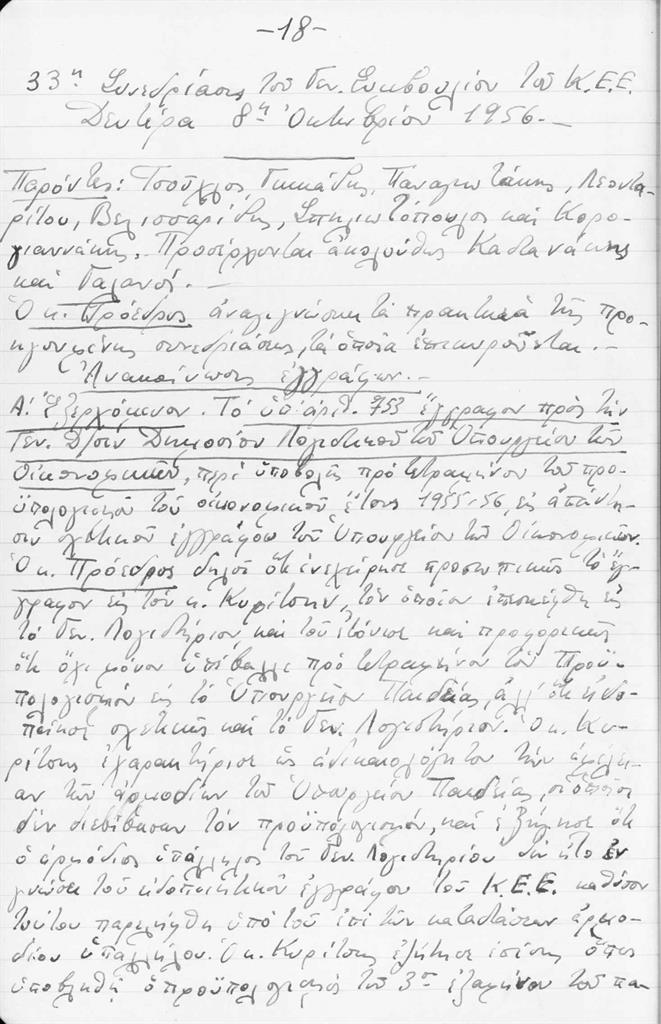 -18-
33η Συνεδρίασις τοῦ Γεν. Συμβουλίου τοῦ Κ.Ε.Ε.
Δευτέρα 8η Ὀκτωβρίου 1956.-
Παρόντες: Τσοῦχλος, Γιμμάδης, Παναγιωτάκης, Λεοντα-
ρίτου, Βελισσαρίδης, Σπηλιωτόπουλος καὶ Κορο-
γιαννάκης. Προσέρχονται ἀκολούθως Καστανάκης
καὶ Γαλανοί.-
Ὁ κ. Πρόεδρος ἀναγιγνώσκει τὰ πρακτικὰ τῆς προ-
ηγουμένης συνεδριάσεως, τὰ ὁποῖα ἐπικυροῦνται.-
Ἀνακοίνωσις ἐγγράφων.-
Α! Ἐξερχόμενον. Τὸ ὑπ' ἀριθ. 753 ἔγγραφον πρὸς τὴν
Γεν. Δ/σιν Δημοσίου Λογιστικοῦ τοῦ Ὑπουργείου τῶν
Οἰκονομικῶν, περὶ ὑποβολῆς πρὸ τετραμήνου τοῦ προ-
ϋπολογισμοῦ τοῦ οἰκονομικοῦ ἔτους 1955-56, εἰς ἀπάντη-
σιν σχετικοῦ ἐγγράφου τοῦ Ὑπουργείου τῶν Οἰκονομικῶν.
Ὁ κ. Πρόεδρος δηλοῖ ὅτι ἐνεχείρησε προσωπικῶς τὸ ἔγ-
γραφον εἰς τὸν κ. Κυρίτσην, τὸν ὁποῖον ἐπεσκέφθη εἰς
τὸ Γεν. Λογιστήριον καὶ τοῦ ἐτόνισε καὶ προφορικῶς
ὅτι ὄχι μόνον ὑπέβαλλε πρὸ τετραμήνου τὸν Προϋ-
πολογισμὸν εἰς τὸ Ὑπουργεῖον Παιδείας, ἀλλ' ὅτι εἰδο-
ποίησε σχετικῶς καὶ τὸ Γεν. Λογιστήριον. Ὁ κ. Κυ-
ρίτσης ἐχαρακτήρισε ὡς ἀδικαιολόγητον τὴν ἀμέλει-
αν τῶν ἁρμοδίων τοῦ Ὑπουργείου Παιδείας, οἱ ὁποῖοι
δὲν διεβίβασαν τὸν προϋπολογισμόν, καὶ ἐξήγησε ὅτι
ὁ ἁρμόδιος ὑπάλληλος τοῦ Γεν. Λογιστηρίου δὲν ἦτο ἐν
γνώσει τοῦ εἰδοποιητικοῦ ἐγγράφου τοῦ Κ.Ε.Ε. καθόσον
τοῦτο παρελήφθη ὑπὸ τοῦ ἐπὶ τῶν καταστάσεων ἁρμο-
δίου ὑπαλλήλου. Ὁ κ. Κυρίτσης ἐζήτησε ἐπίσης ὅπως
ὑποβληθῇ ὁ προϋπολογισμὸς τοῦ 3ου ἑξαμήνου τοῦ πα-